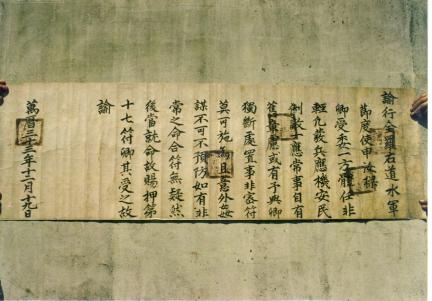 諭行全羅右道水軍
節度使申
卿受委一方體任非
輕凡發兵應機安民
制敵一應常事自有
舊章慮或有予與卿
獨斷處置事非密符
莫可施爲且意外姦
謀不可不預防如有非
常之命合符無疑然
後當就命故賜押第
十七符卿其受之故
諭
萬曆三十三年十二月十九日